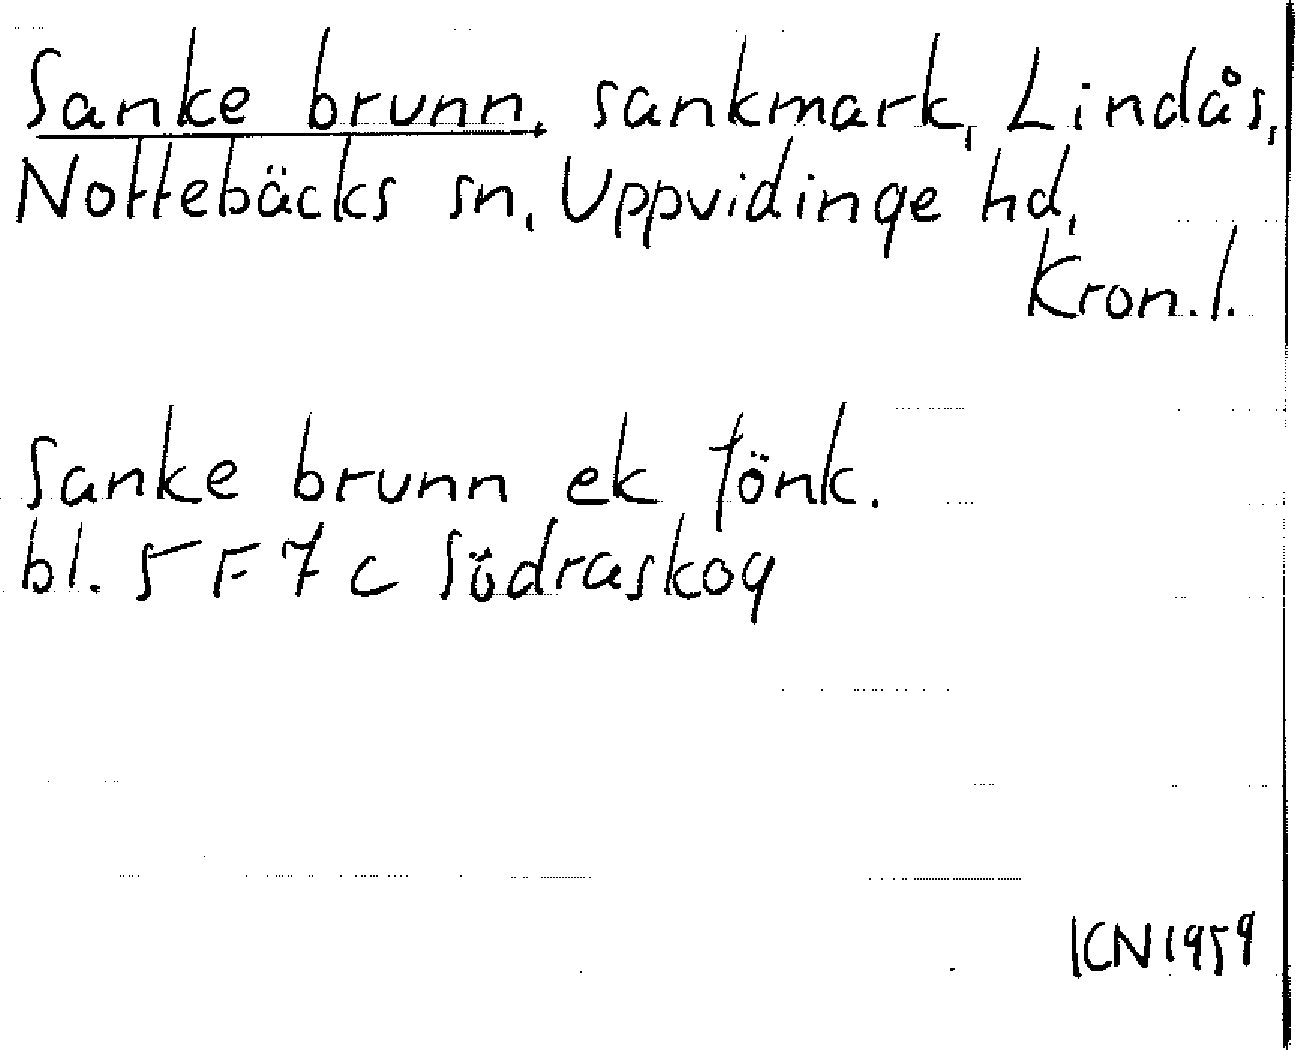 Sanke brunn, sankmark, Lindås,
Nottebäcks sn, Uppvidinge hd,
Kron. l.
Sanke brunn ek fönk.
bl. 5 F 7 c Södraskog
KN 1959